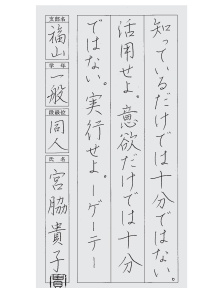 知っているだけでは十分ではない。
活用せよ。意欲だけでは十分
ではない。実行せよ。ーゲーテー
支部名
福山
学年
一般
段級位
同人
氏名
宮脇貴子